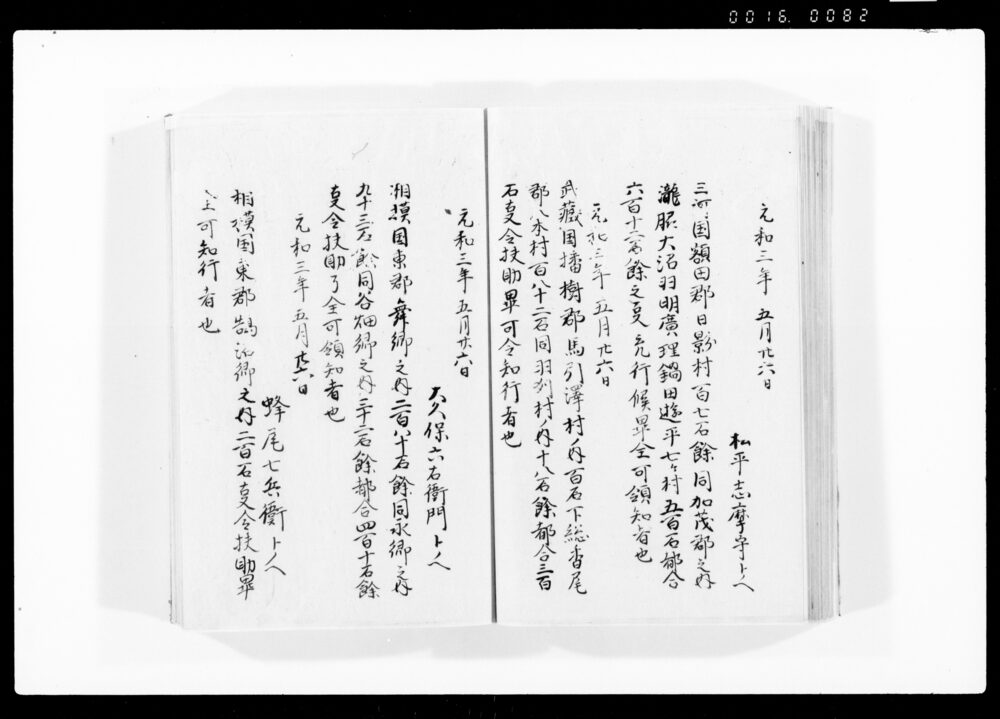 0016. 0082
元和三年 五月廿六日
松平志摩守トノヘ
三河国額田郡日影村百七石餘同加茂郡之内
瀧脇大沼羽明廣理鍋田遊平七ケ村五百石都合
六百十六石餘之事宛行候畢全可領知者也
元和三年 五月廿六日
武藏国播樹郡馬引澤村ノ内百石下総香尾
郡八木村百八十二石同羽刈村ノ内十八石餘都合三百
石事令扶助畢可令知行者也
元和三年 五月廿六日
大久保六右衛門トノヘ
相摸国東郡舞郷之内二百八十石餘同永郷之内
九十三石餘同谷畑郷之内三十二石餘都合四百十石餘
事令扶助了全可領知者也
元和三年五月廿六日
蜂尾七兵衛トノヘ
相摸国東郡鵠沼郷之内二百石事令扶助畢
全可知行者也